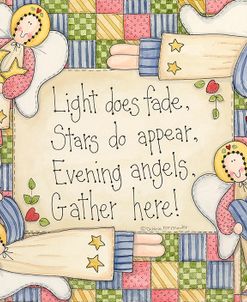 Light does fade,
Stars do appear,
Evening angels,
Gather here!